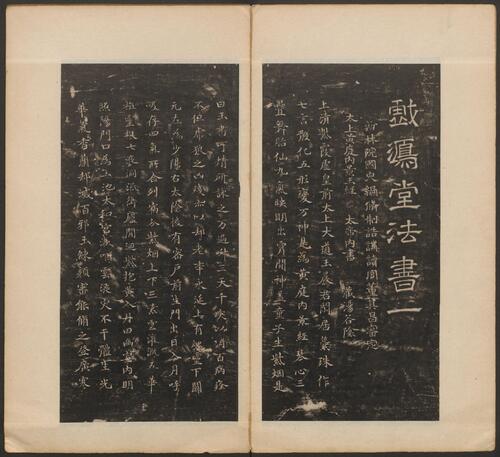 戲鴻堂法書一
翰林院國史編脩制誥講讀官董其昌審定
太上黃庭內景玉經 太帝內書
上清紫霞虛皇前太上大道玉晨君閒居蘂珠作
七言散化五形變万神是為黃庭內景經琴心三
疊舞胎仙九氣映明出霄間神蓋童子生紫烟是
曰玉書可精研詠之万過昇三天千灾以消百病痊
不憚虎狼之凶殘亦以却老年永延上有魂靈下關
元左為少陽右太陰後有密戶前生門出日入月呼
吸存四氣所合列宿分紫烟上下三素雲灌溉五華
植靈根七液洞流衝廬間迴紫抱黃入丹田幽室內明
照陽門口為玉池太和官漱咽靈液灾不干體生光
華氣香蘭却滅百邪玉鍊顏審能脩之登廣寒